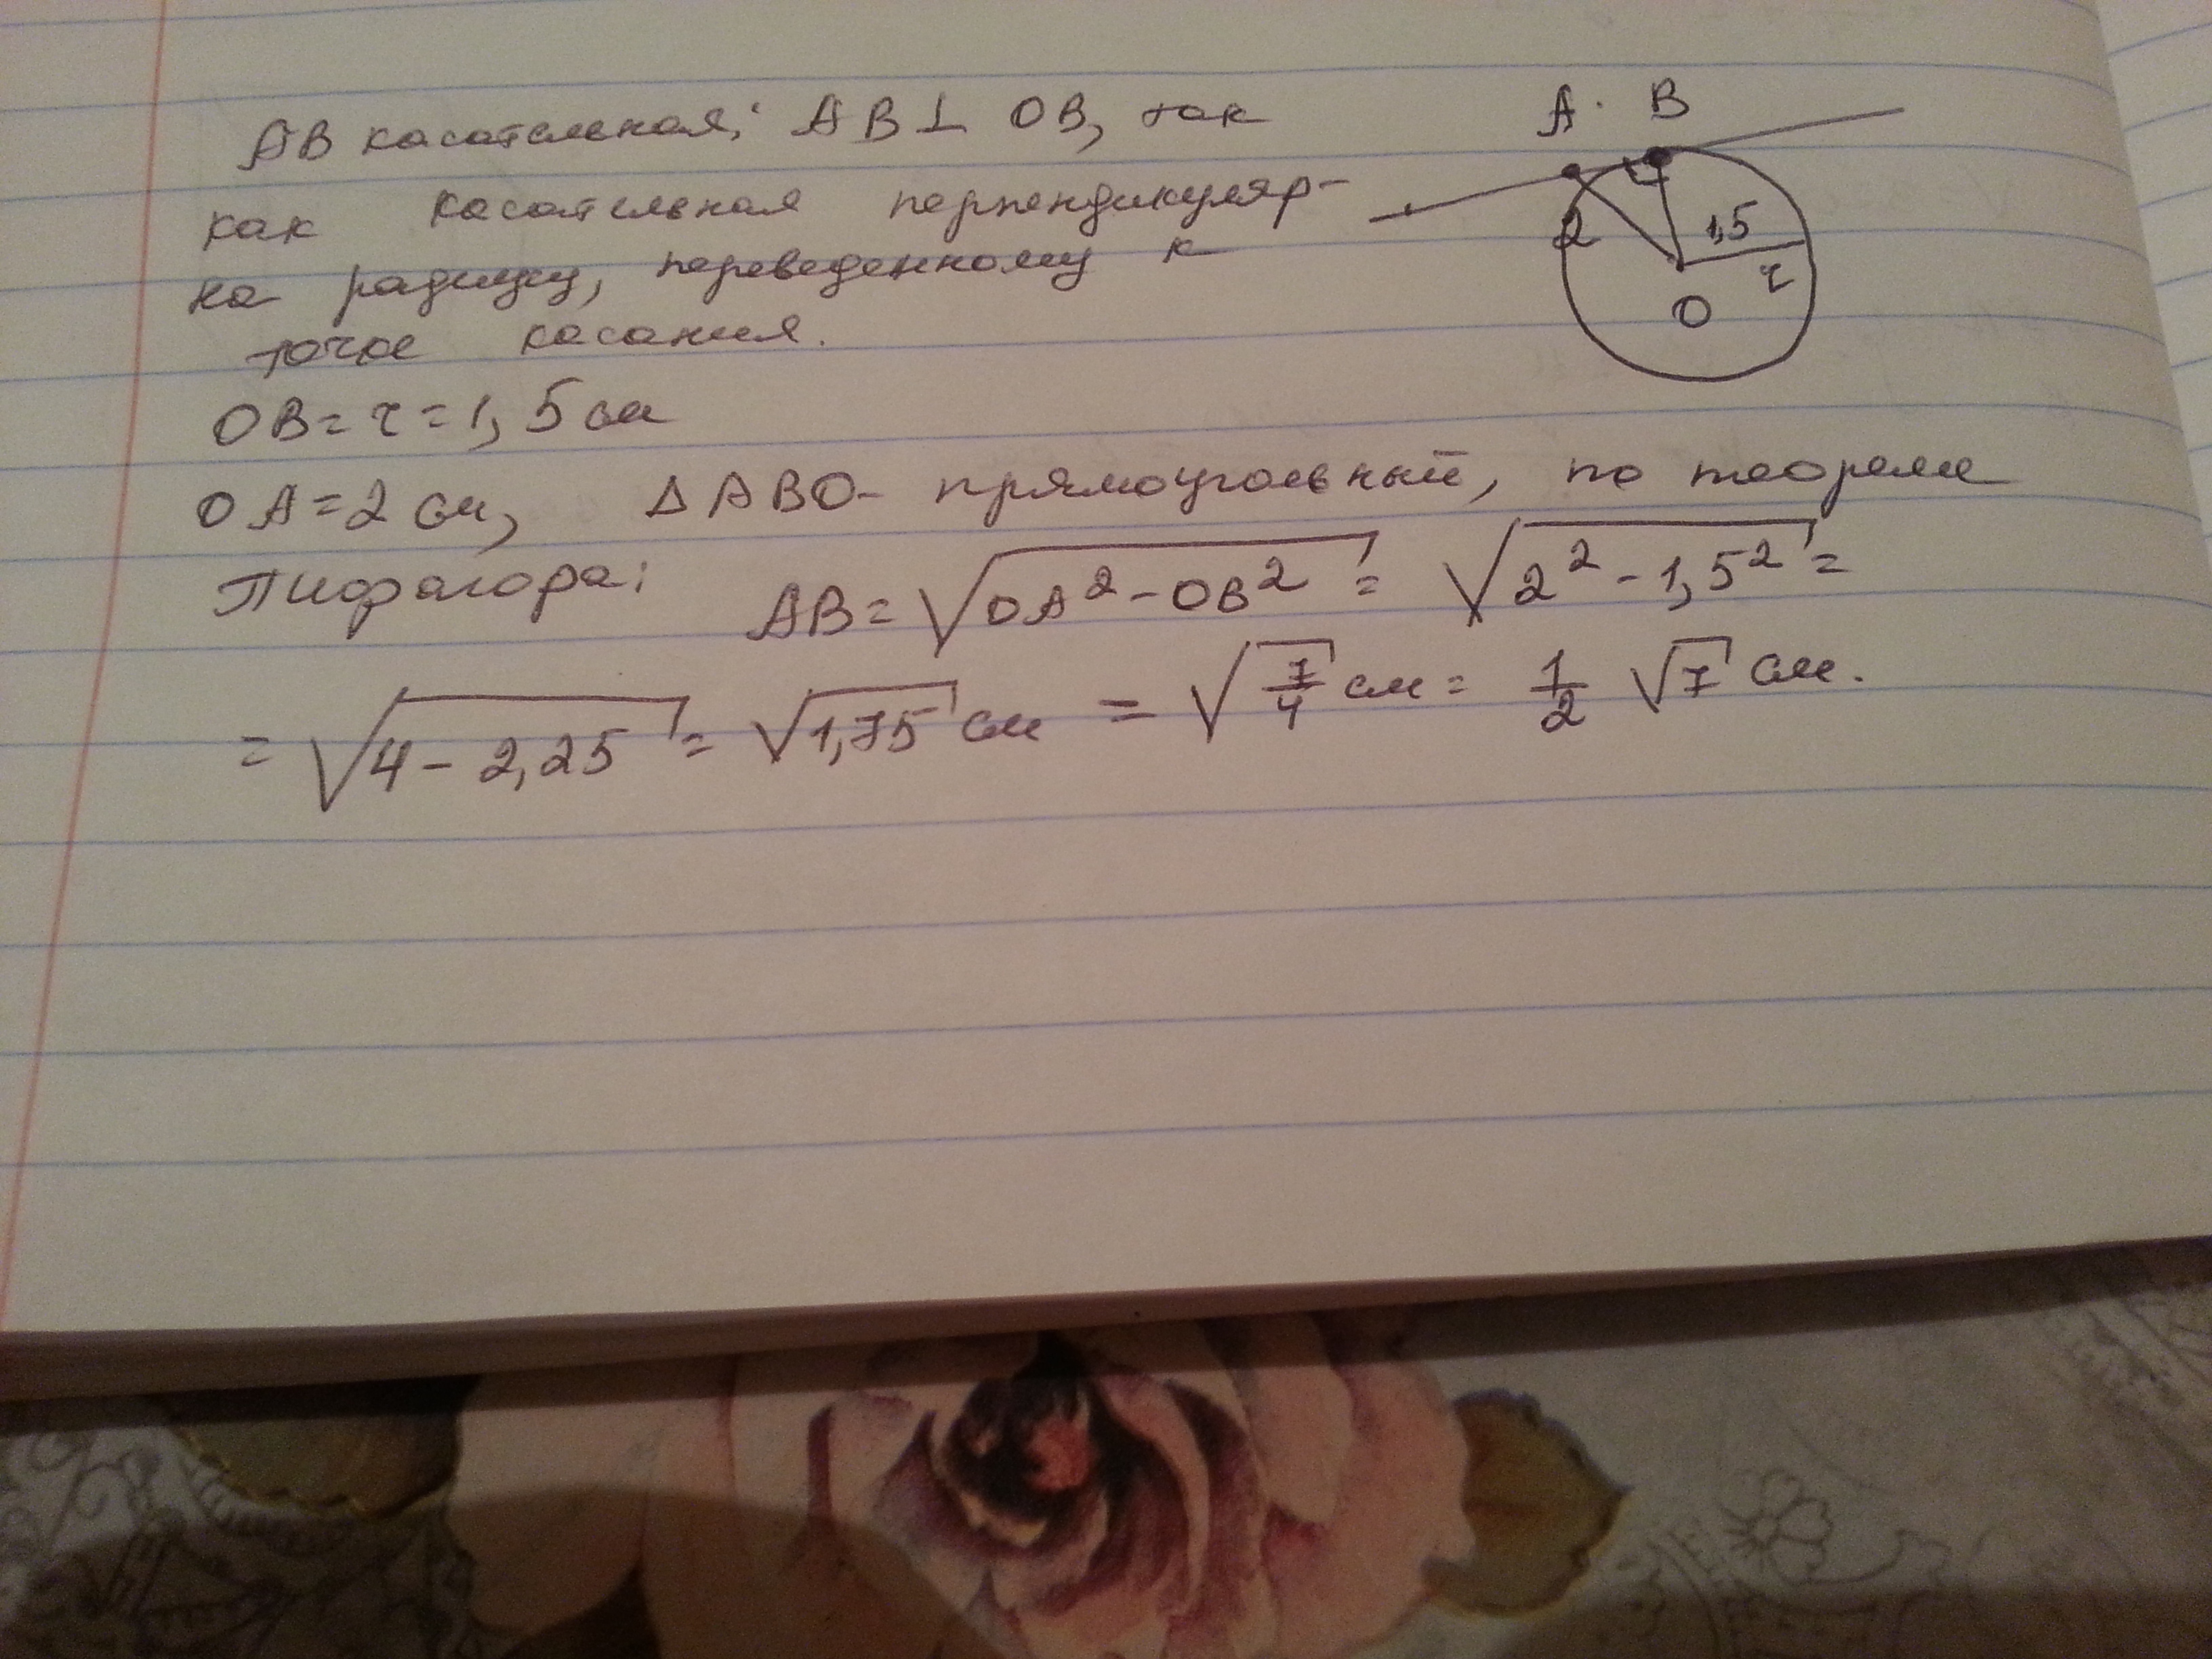 AB касательная; AB ⊥ OB, так
как касательная перпендикуляр-
на радиусу, переведенному к
точке касания.
OB = r = 1,5 см
OA = 2 см, Δ ABO - прямоугольный, по теореме
Пифагора: AB = √(OA² - OB²) = √(2² - 1,5²) =
= √(4 - 2,25) = √1,75 см = √(7/4) см = 1/2 √7 см.
A . B
2
1,5
r
O